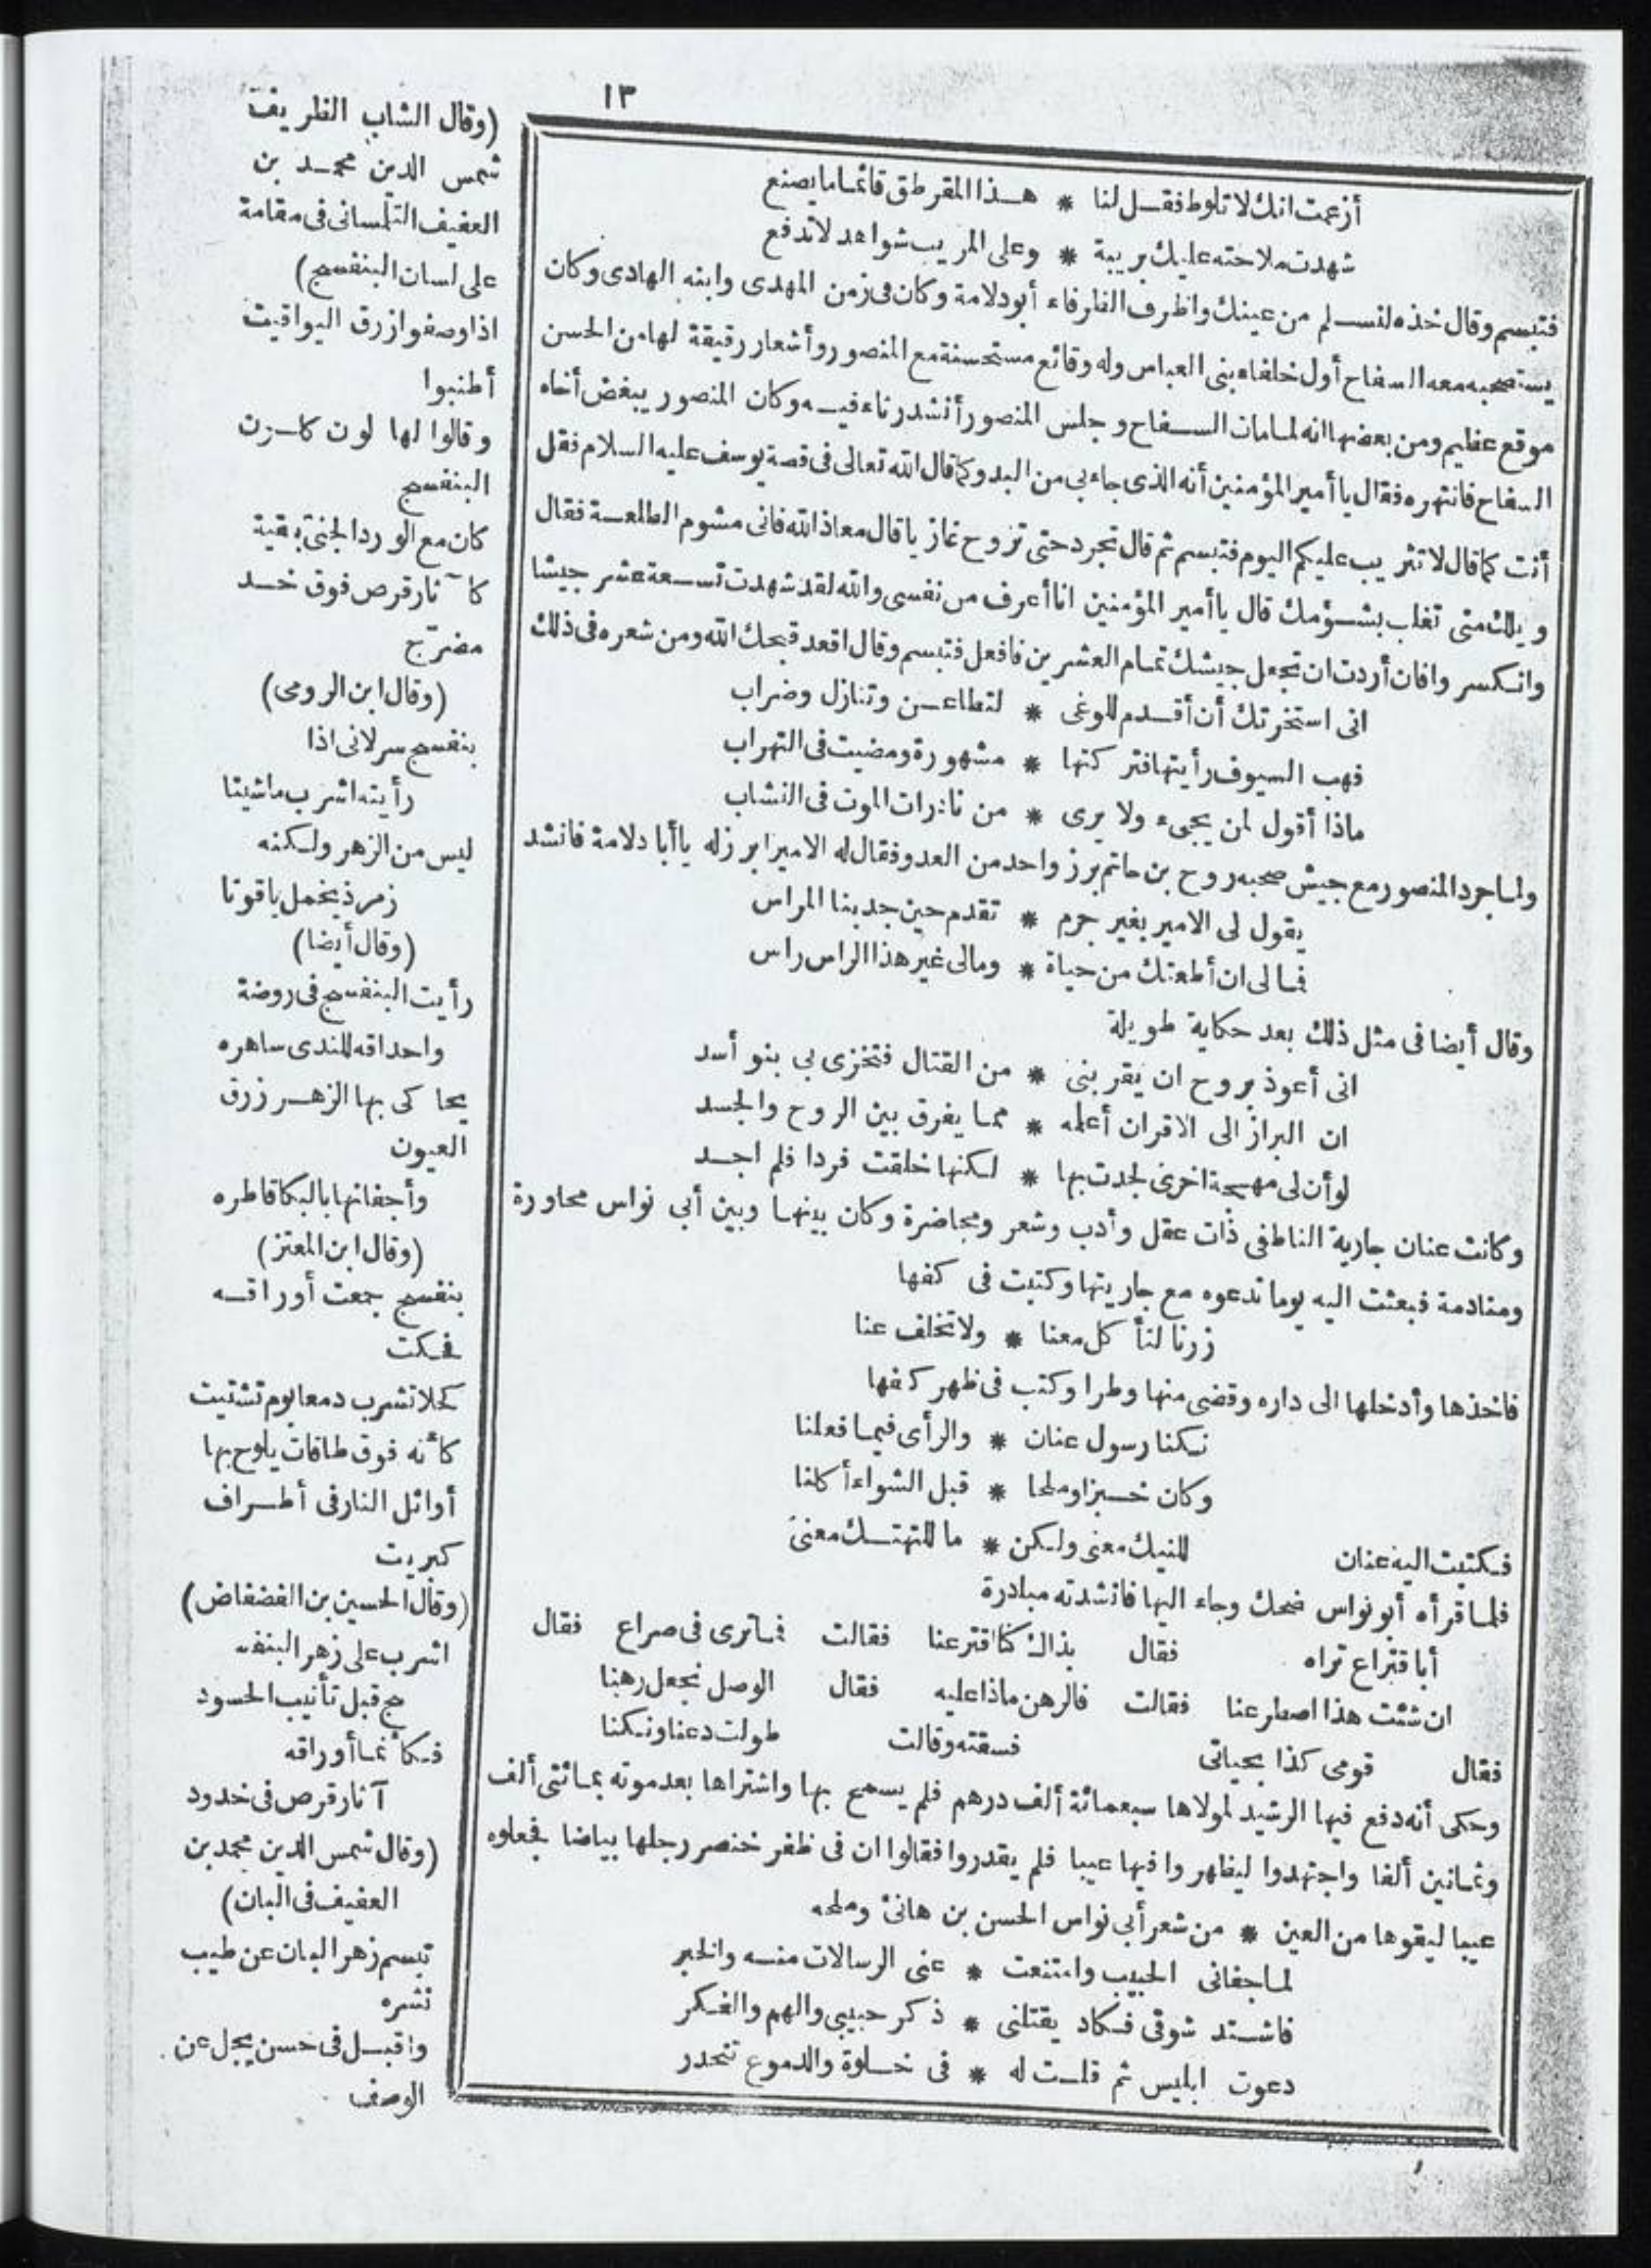 ١٣
أزعمت انك لا تلوط فقل لنا * هذا المقرطق قائما ما يصنع
شهدت ملاحته عليك بريبة * وعلى المريب شواهد لا تدفع
فتبسم وقال خذه لنسلم من عينك واظرف الظرفاء أبو دلامة وكان فى زمن المهدى وابنه الهادى وكان
يستصحبه معه السفاح أول خلفاء بنى العباس وله وقائع مستحسنة مع المنصور وأشعار رقيقة لها من الحسن
موقع عظيم ومن بعضها انه لما مات السفاح وجلس المنصور أنشد رثاء فيه وكان المنصور يبغض أخاه
السفاح فانتهره فقال يا أمير المؤمنين أنه الذى جاء بى من البدو كما قال الله تعالى فى قصة يوسف عليه السلام فقل
أنت كما قال لا تثريب عليكم اليوم فتبسم ثم قال تجرد حتى تروح غازيا قال معاذ الله فانى مشوم الطلعة فقال
ويلك متى تغلب بشؤمك قال يا أمير المؤمنين انا أعرف من نفسى والله لقد شهدت تسعة عشر جيشا
وانكسروا فان أردت ان تجعل جيشك تمام العشرين فافعل فتبسم وقال اقعد قبحك الله ومن شعره فى ذلك
انى استخرتك أن أقدم للوغى * لتطاعن وتنازل وضراب
فهب السيوف رأيتها فتركتها * مشهورة ومضيت فى التهراب
ماذا أقول لمن يجىء ولا يرى * من نادرات الموت فى النشاب
ولما جرد المنصور مع جيش صحبه روح بن حاتم برز واحد من العدو فقال له الامير ابرز له يا أبا دلامة فانشد
يقول لى الامير بغير جرم * تقدم حين جد بنا المراس
فمالى ان أطعتك من حياة * ومالى غير هذا الراس راس
وقال أيضا فى مثل ذلك بعد حكاية طويلة
انى أعوذ بروح ان يقربنى * من القتال فتخزى بى بنو أسد
ان البراز الى الاقران أعلمه * مما يفرق بين الروح والجسد
لو أن لى مهجة اخرى لجدت بها * لكنها خلقت فردا فلم اجد
وكانت عنان جارية الناطفى ذات عقل وأدب وشعر ومحاضرة وكان بينها وبين أبى نواس محاورة
ومنادمة فبعثت اليه يوما تدعوه مع جاريتها وكتبت فى كفها
زرنا لنأكل معنا * ولا تخلف عنا
فاخذها وأدخلها الى داره وقضى منها وطرا وكتب فى ظهر كفها
نكنا رسول عنان * والرأى فيما فعلنا
وكان خبزا وملحا * قبل الشواء أكلنا
فكتبت اليه عنان للنيك معنى ولكن * ما للتهتك معنى
فلما قرأه أبو نواس ضحك وجاء اليها فانشدته مبادرة
أبا قتراع تراه فقال بذاك كنا اقترعنا فقالت فما ترى فى صراع فقال
ان شئت هذا اصطرعنا فقالت فالرهن ماذا عليه فقال الوصل نجعل رهنا
فقال قومى كذا بحياتى فسقته وقالت طولت دعنا ونكنا
وحكى أنه دفع فيها الرشيد لمولاها سبعمائة ألف درهم فلم يسمح بها واشتراها بعد موته بمائتى ألف
وثمانين ألفا واجتهدوا ليظهروا فيها عيبا فلم يقدروا فقالوا ان فى ظفر خنصر رجلها بياضا فجعلوه
عيبا ليقوها من العين * من شعر أبى نواس الحسن بن هانئ وملحه
لما جفانى الحبيب وامتنعت * عنى الرسالات منه والخبر
فاشتد شوقى فكاد يقتلنى * ذكر حبيبى والهم والفكر
دعوت ابليس ثم قلت له * فى خلوة والدموع تنحدر
(وقال الشاب الظريف
شمس الدين محمد بن
العفيف التلمسانى فى مقامة
على لسان البنفسج)
اذا وصفوا زرق اليواقيت
أطنبوا
وقالوا لها لون كلون
البنفسج
كان مع الورد الجنى بقية
كآثار قرص فوق خد
مضرّج
(وقال ابن الرومى)
بنفسج سر لانى اذا
رأيته اشرب ما شيتا
ليس من الزهر ولكنه
زمرذ يحمل ياقوتا
(وقال أيضا)
رأيت البنفسج فى روضة
واحداقه للندى ساهره
يحاكى بها الزهر زرق
العيون
وأجفانها بالبكا قاطره
(وقال ابن المعتز)
بنفسج جمعت أوراقه
فحكت
كحلا تشرب دمعا يوم تشتيت
كأنه فوق طاقات يلوح بها
أوائل النار فى أطراف
كبريت
(وقال الحسين بن الفضفاض)
اشرب على زهر البنفـ
ـج قبل تأنيب الحسود
فكأنما أوراقه
آثار قرص فى خدود
(وقال شمس الدين محمد بن
العفيف فى البان)
تبسم زهر البان عن طيب
نشره
واقبل فى حسن يجل عن
الوصف